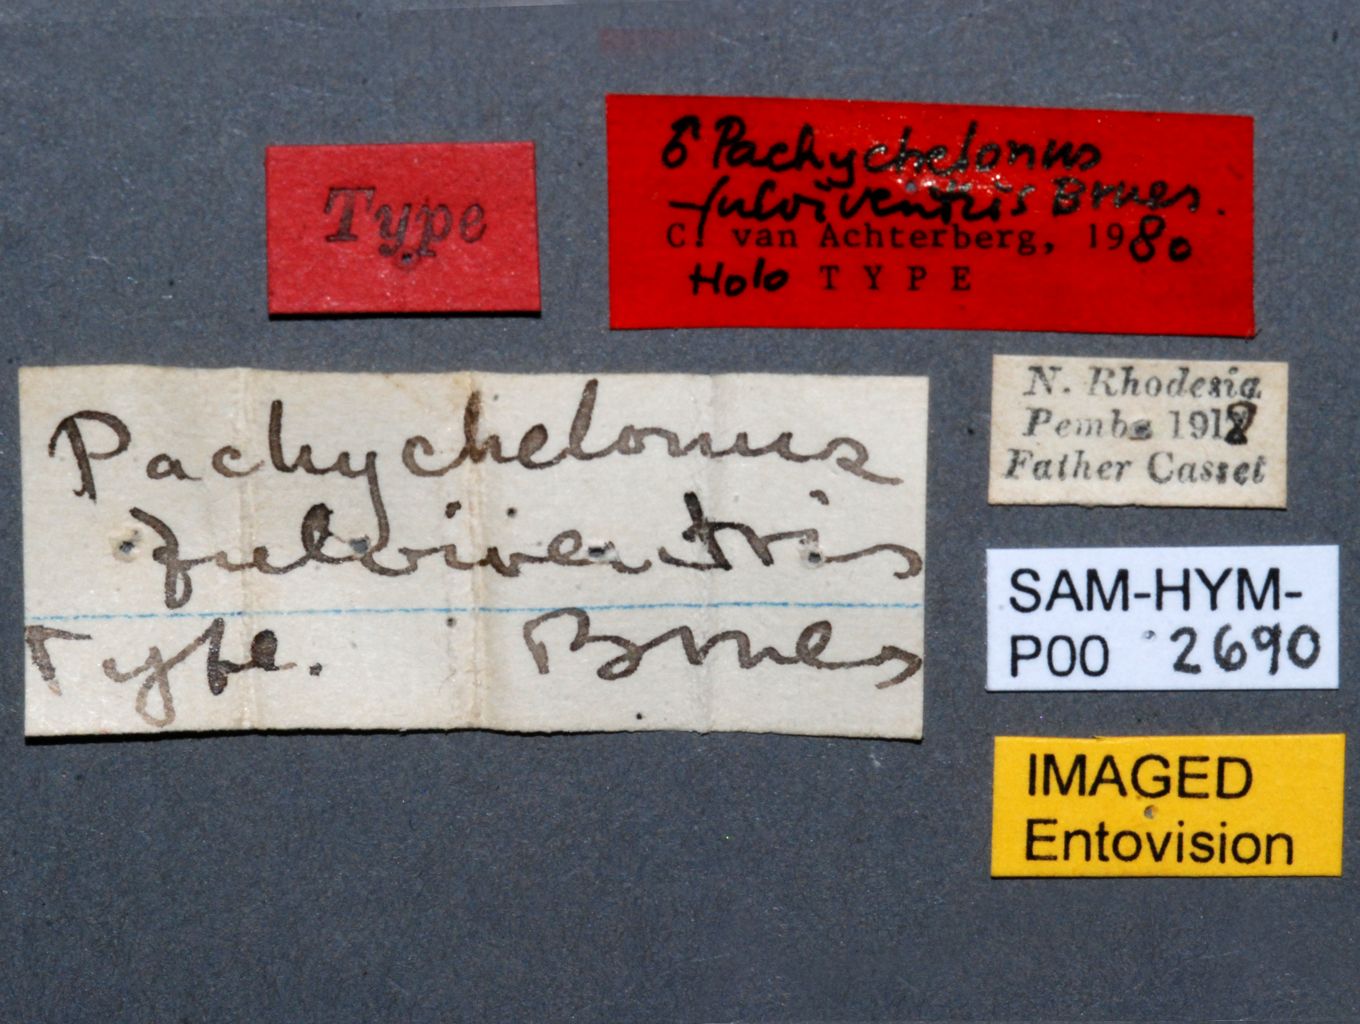 Type
♂ Pachychelonus
fulviventris Brues.
C. van Achterberg, 1980
Holo TYPE
Pachychelonus
fulviventris
Type. Brues
N. Rhodesia
Pemba 1918
Father Casset
SAM-HYM-
P00 2690
IMAGED
Entovision